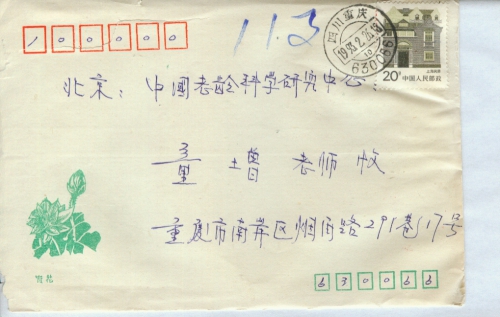 100000
11.3
四川重庆
630066
20分 中国人民邮政
北京：中國老龄科学研究中心：
老师 收
重庆市南岸区烟雨路291巷17号
630066